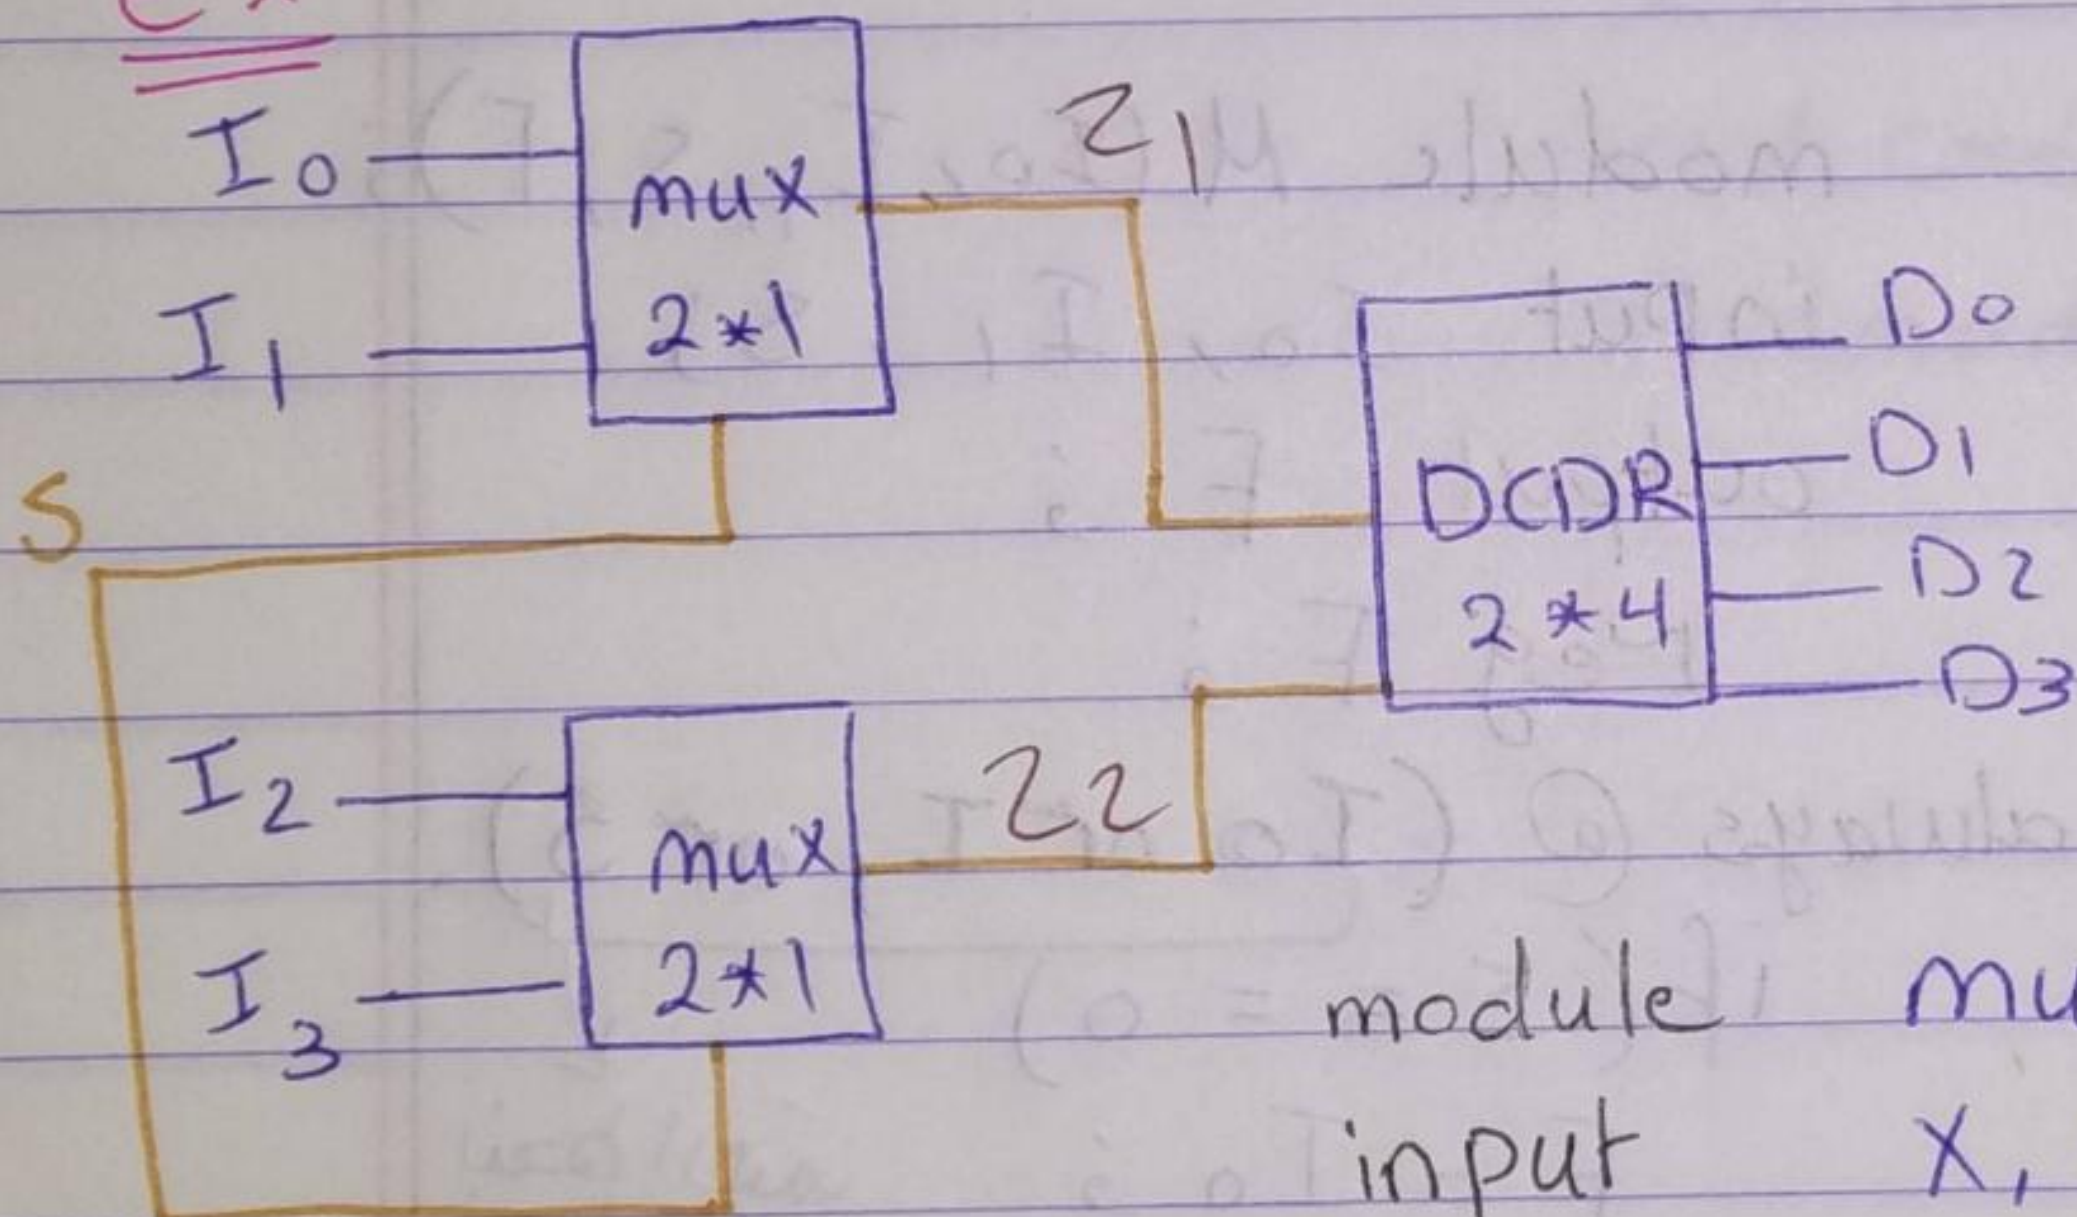 Ex
I0
mux
2*1
I1
Z1
S
DCDR
2*4
D0
D1
D2
D3
I2
mux
2*1
I3
Z2
module mu
input X,